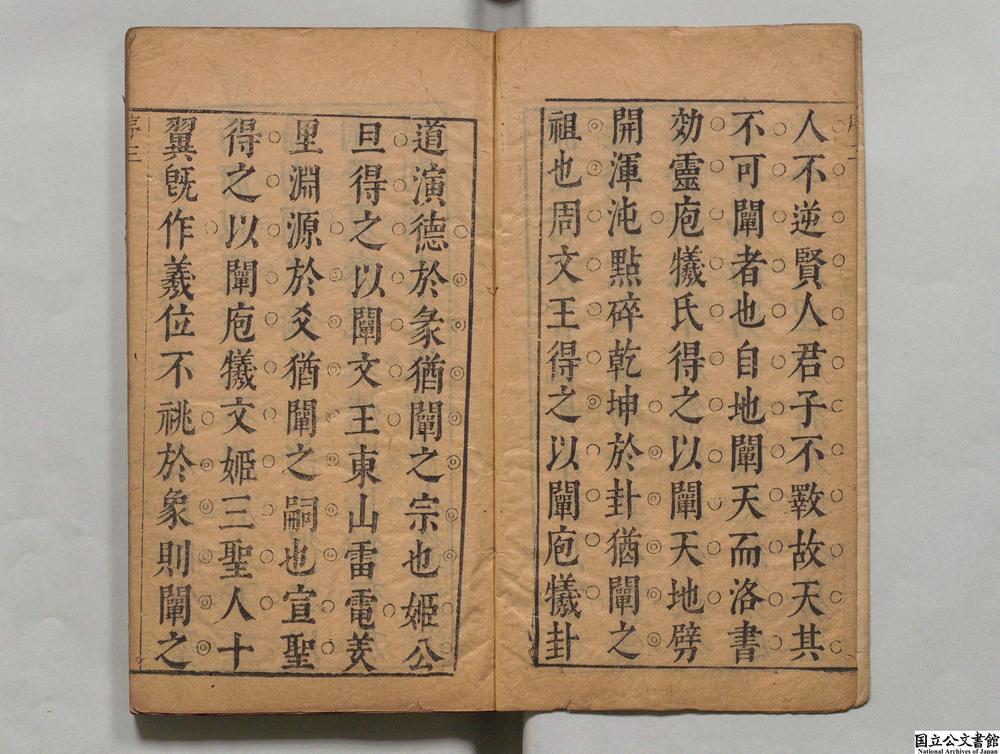 人不逆賢人君子不斁故天其
不可闡者也自地闡天而洛書
効靈庖犧氏得之以闡天地劈
開渾沌點碎乾坤於卦猶闡之
祖也周文王得之以闡庖犧卦
道演德於彖猶闡之宗也姬公
旦得之以闡文王東山雷電羑
里淵源於爻猶闡之嗣也宣聖
得之以闡庖犧文姬三聖人十
翼旣作羲位不祧於象則闡之
序三
国立公文書館
National Archives of Japan